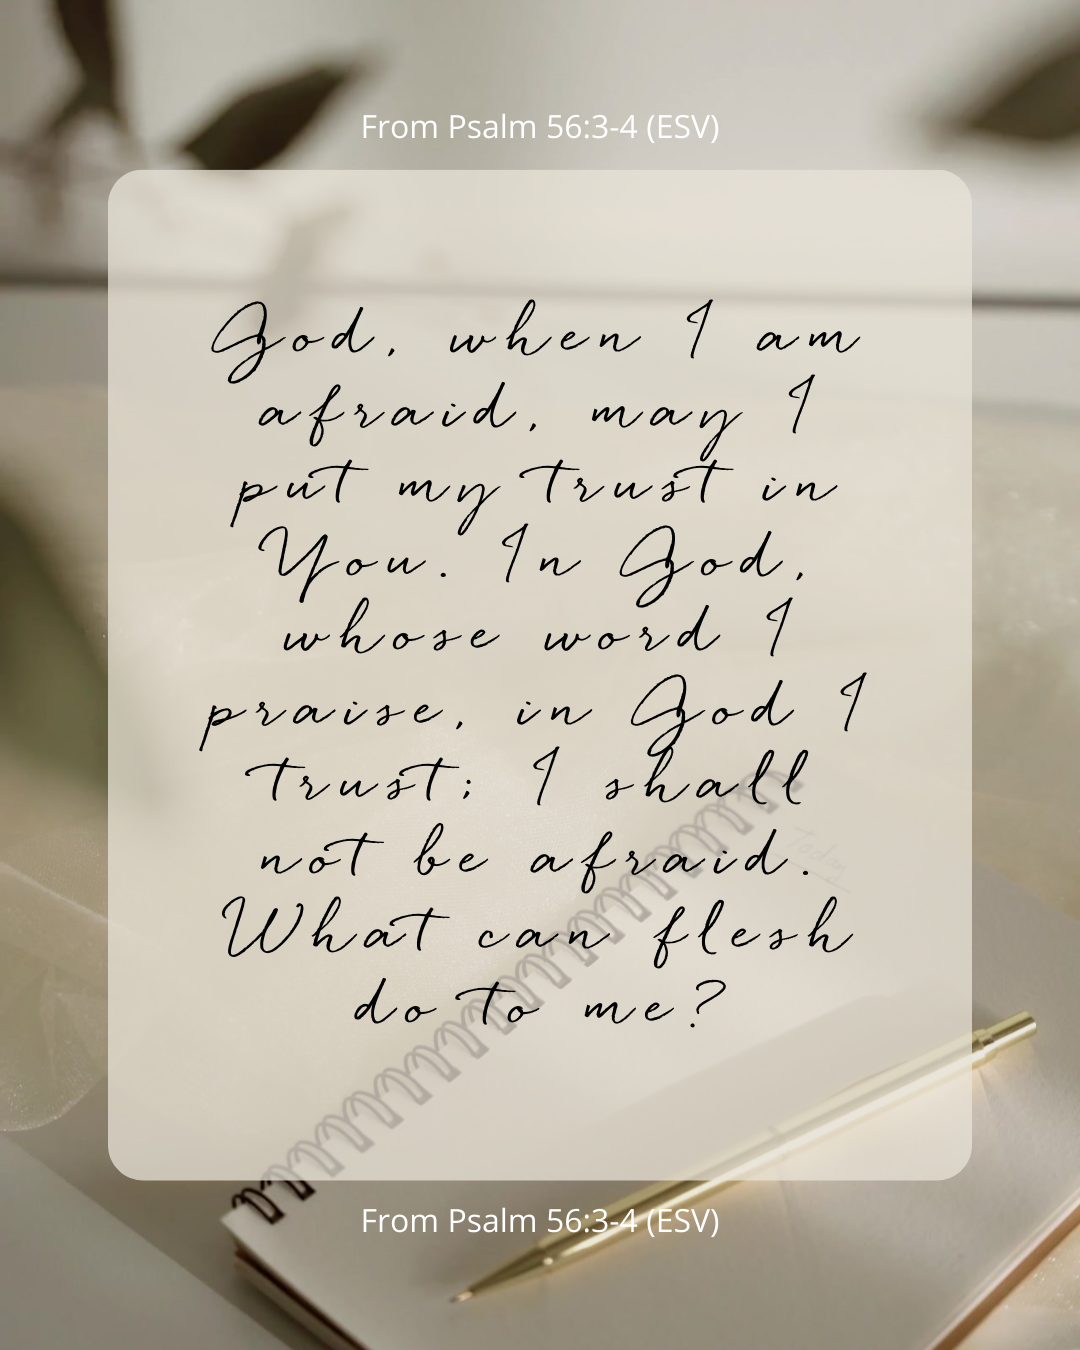 From Psalm 56:3-4 (ESV)
God, when I am
afraid, may I
put my trust in
You. In God,
whose word I
praise, in God I
trust; I shall
not be afraid.
What can flesh
do to me?
From Psalm 56:3-4 (ESV)